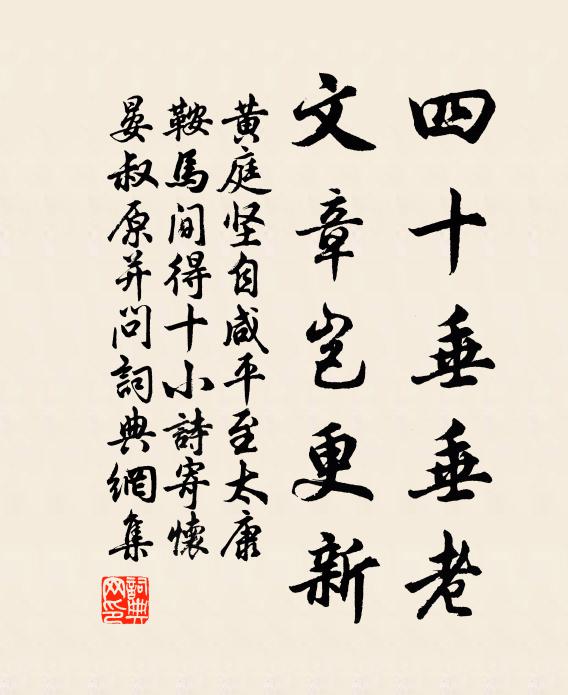 四十垂垂老
文章岂更新
黄庭坚自咸平至太康
鞍馬间得十小詩寄懷
晏叔原并问詞典網集
詞典网印